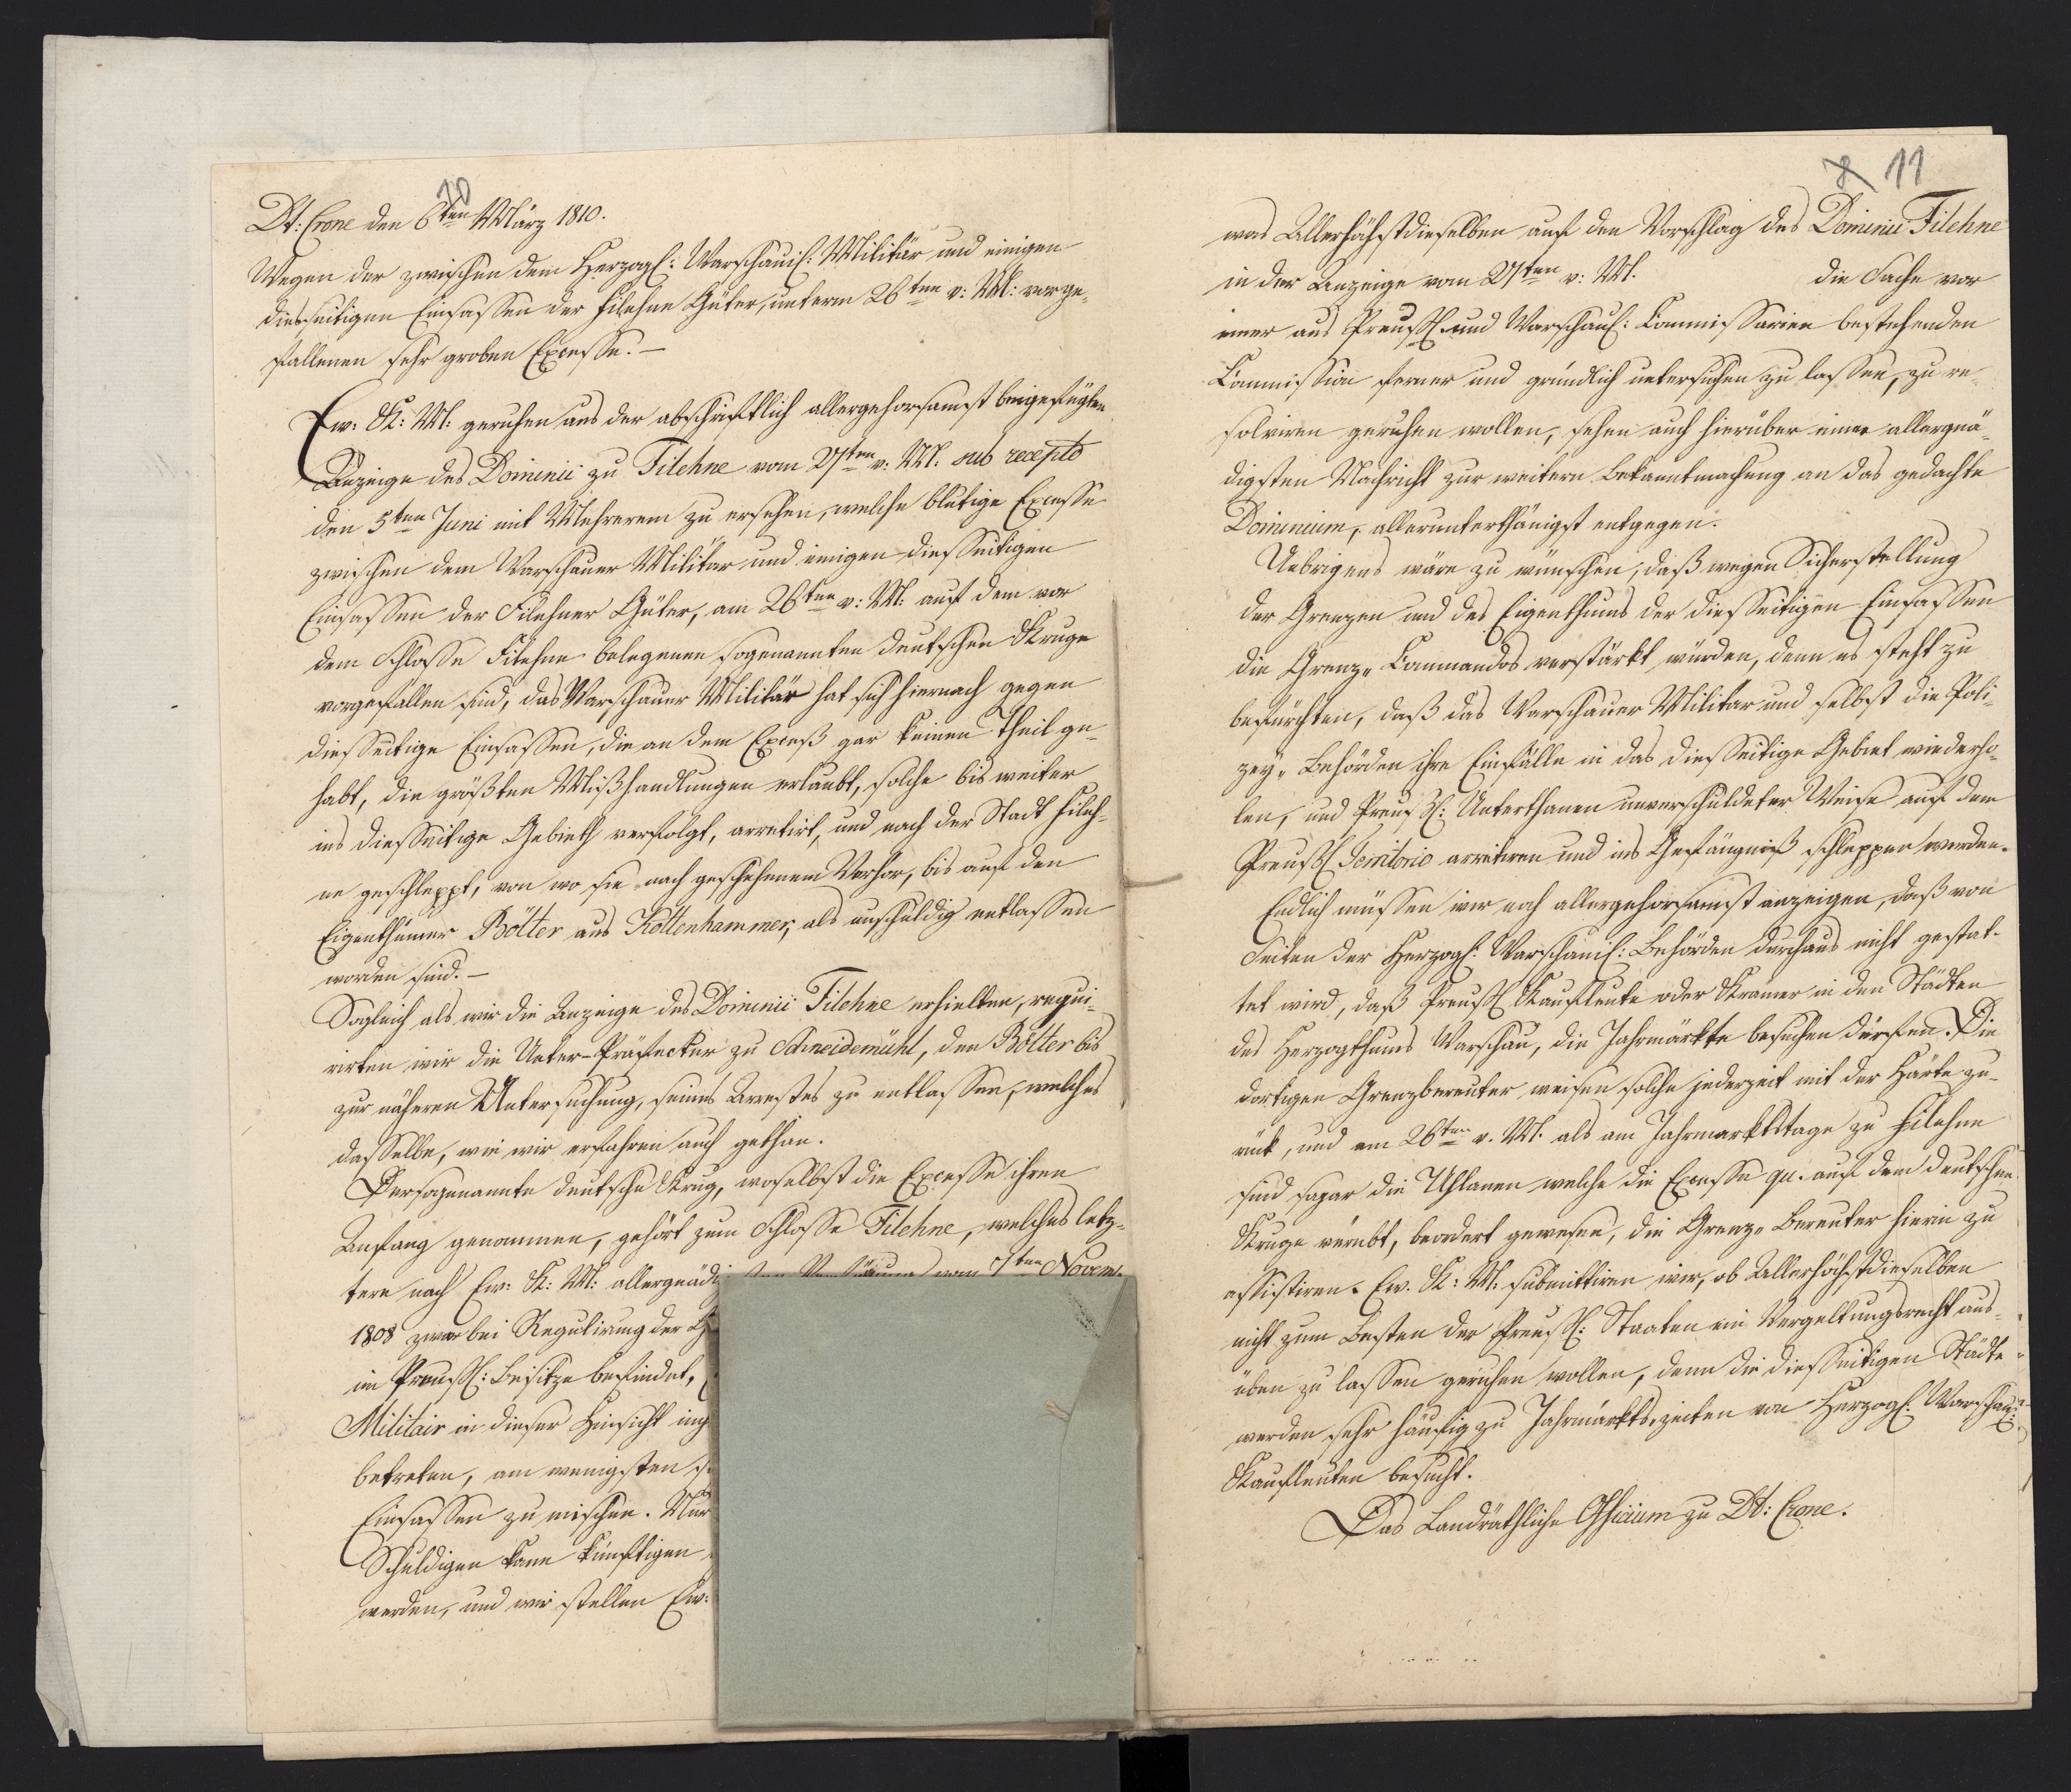 10
Dt: Crone den 6ten März 1810.
Wegen der zwischen dem Herzogl: Warschauis: Militär und einigen
diesseitigen Einsassen der Filehne Güter, unterm 26ten v: M: vorge-
fallenen sehr groben Excesse. –
Ew: K: M: geruhen aus der abschriftlich allergehorsamst beigefügten
Anzeige des Dominii zu Filehne vom 27ten v: M. sub recepto
den 5ten Juni mit Mehrerem zu ersehen, welche blutige Excesse
zwischen dem Warschauer Militär und einigen diesseitigen
Einsassen der Filehner Güter, am 26ten v: M: auf dem vor
dem Schlosse Filehne belegenen sogenannten deutschen Kruge
vorgefallen sind, das Warschauer Militär hat sich hiernach gegen
diesseitige Einsassen, die an dem Exceß gar keinen Theil ge-
habt, die größten Mißhandlungen erlaubt, solche bis weiter
ins diesseitige Gebieth verfolgt, arretirt, und nach der Stadt Fileh-
ne geschleppt, von wo sie nach geschehenem Verhör, bis auf den
Eigenthümer Bötter aus Kottenhammer, als unschuldig entlassen
worden sind. –
Sogleich als wir die Anzeige des Dominii Filehne erhielten, requi-
rirten wir die Unter-Präfectur zu Schneidemühl, den Bötter bis
zur näheren Untersuchung, seines Arrestes zu entlassen, welches
dasselbe, wie wir erfahren auch gethan.
Der sogenannte deutsche Krug, woselbst die Excesse ihren
Anfang genommen, gehört zum Schlosse Filehne, welches letz-
tere nach Ew: K: M: allergnädig vom 7ten Novem-
1808 zwar bei Regulirung der
im Preuß: Besitze befindet,
Militair in dieser Hinsicht
betreten, am wenigsten
Einsassen zu mischen. Nur
Schuldigen kann künftigen
werden, und wir stellen Ew:
8 11
was Allerhöchstdieselben auf den Vorschlag des Dominii Filehne
in der Anzeige vom 27ten v: M. die Sache vor
einer aus Preuß: und Warschaus: Commissarien bestehenden
Commission ferner und gründlich untersuchen zu lassen, zu re-
solviren geruhen wollen, sehen auch hierüber einer allergnä-
digsten Nachricht zur weitern Bekanntmachung an das gedachte
Dominium, allerunterthänigst entgegen.
Uebrigens wäre zu wünschen, daß wegen Sicherstellung
der Grenzen und des Eigenthums der diesseitigen Einsassen
die Grenz-Commandos verstärkt würden, denn es steht zu
befürchten, daß das Warschauer Militär und selbst die Poli-
zey-Behörden ihre Einfälle in das diesseitige Gebiet wiederho-
len, und Preuß: Unterthanen unverschuldeter Weise auf dem
Preuß: Territorio arretiren und ins Gefängniß schleppen werden.
Endlich müssen wir noch allergehorsamst anzeigen, daß von
Seiten der Herzogl: Warschauis: Behörden durchaus nicht gestat-
tet wird, daß Preuß: Kaufleute oder Krämer in den Städten
des Herzogthums Warschau, die Jahrmärkte besuchen dürfen. Die
dortigen Grenzbereuter weisen solche jederzeit mit der Härte zu-
rück, und am 26ten v. M. als am Jahrmarktstage zu Filehne
sind sogar die Uhlanen welche die Excesse qu: auf dem deutschen
Kruge verübt, beordert gewesen, die Grenz-Bereuter hierin zu
assistiren. Ew. K: M: submittiren wir, ob Allerhöchstdieselben
nicht zum Besten der Preuß: Staaten ein Vergeltungsrecht aus-
üben zu lassen geruhen wollen, denn die diesseitigen Städte
werden sehr häufig zu Jahrmarkts-zeiten von Herzogl: Warschaui:
Kaufleuten besucht.
Das Landräthliche Officium zu Dt: Crone.